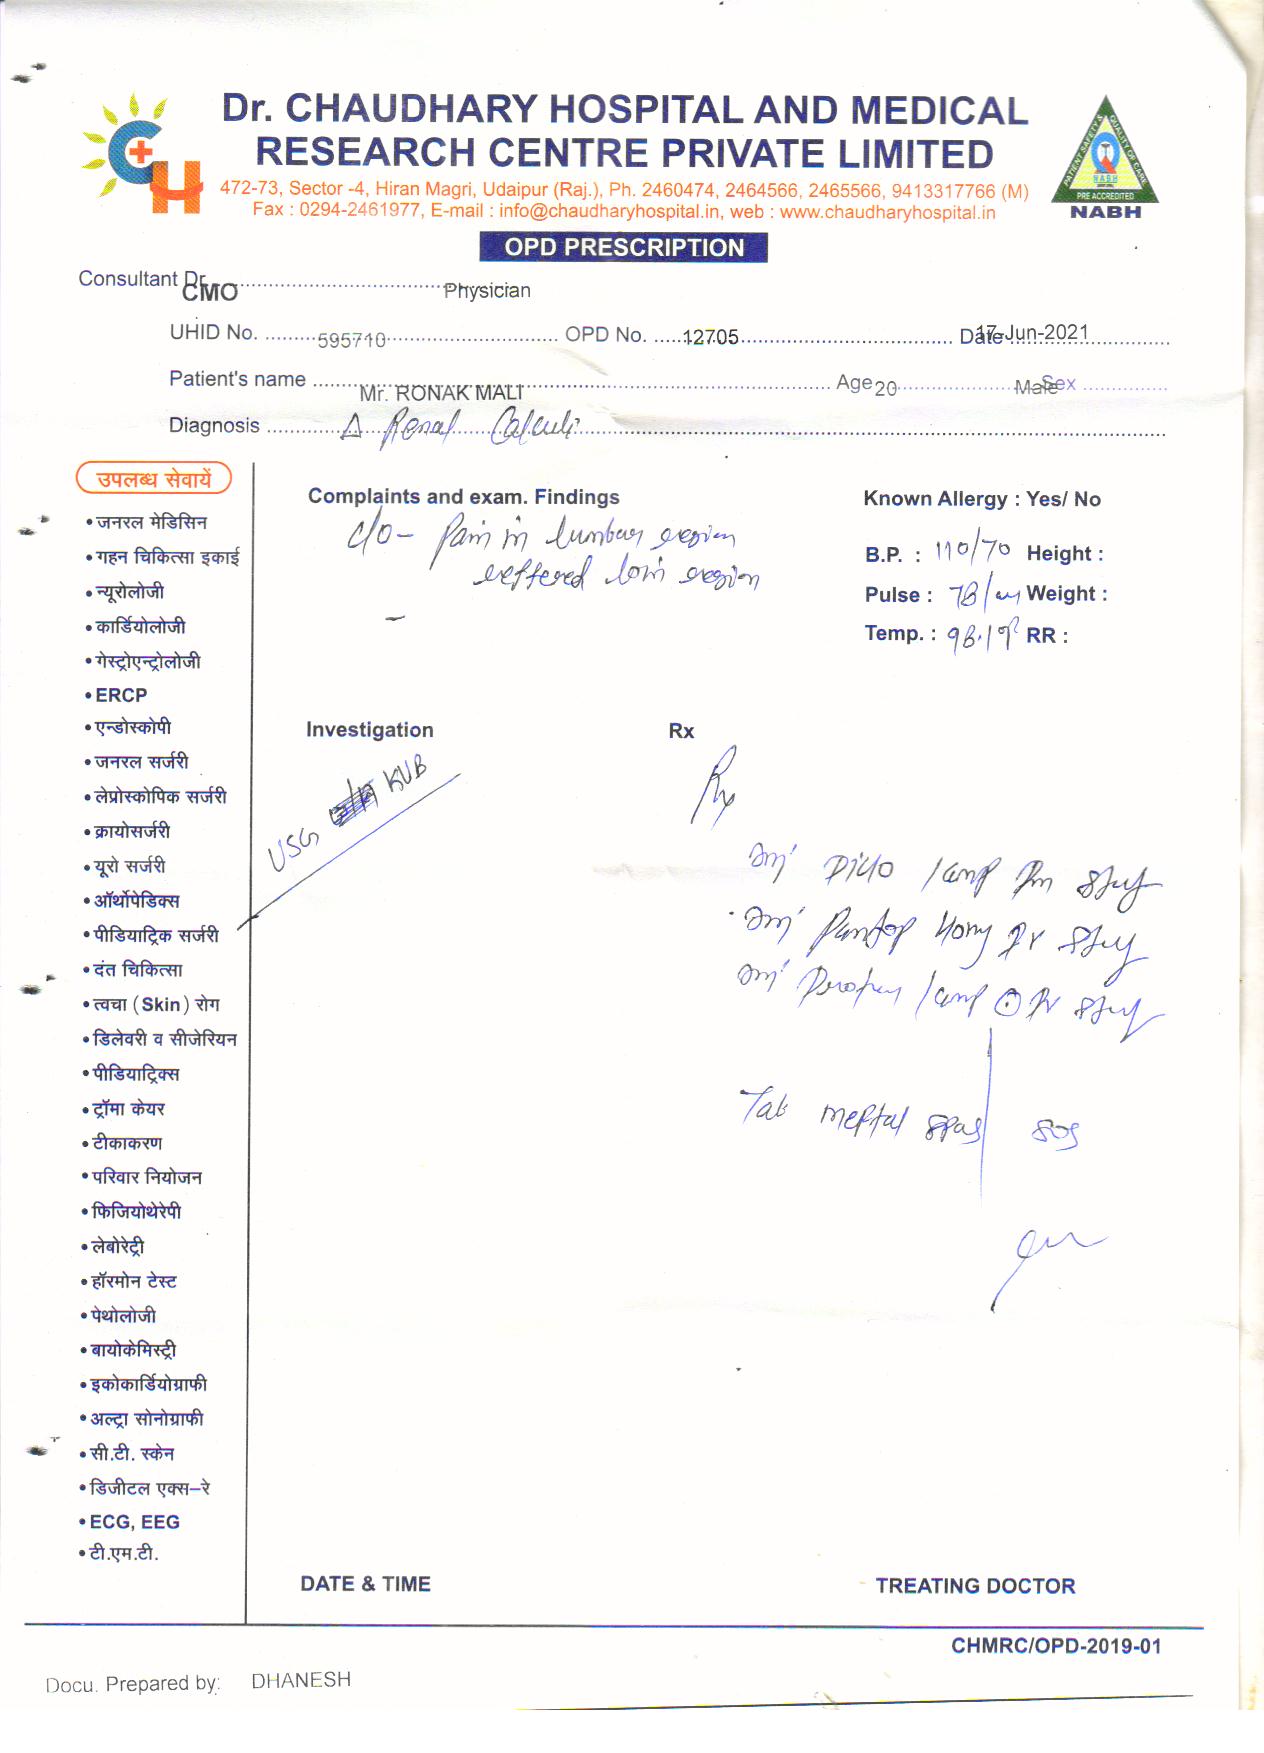 Dr. CHAUDHARY HOSPITAL AND MEDICAL
RESEARCH CENTRE PRIVATE LIMITED
472-73, Sector -4, Hiran Magri, Udaipur (Raj.), Ph. 2460474, 2464566, 2465566, 9413317766 (M)
Fax : 0294-2461977, E-mail : info@chaudharyhospital.in, web : www.chaudharyhospital.in
PATIENT SAFETY & QUALITY OF CARE
NABH
PRE ACCREDITED
NABH
OPD PRESCRIPTION
Consultant Dr. CMO Physician
UHID No. 595710 OPD No. 12705 Date 17-Jun-2021
Patient's name Mr. RONAK MALI Age 20 Sex Male
Diagnosis Δ Renal Calculi
उपलब्ध सेवायें
• जनरल मेडिसिन
• गहन चिकित्सा इकाई
• न्यूरोलोजी
• कार्डियोलोजी
• गेस्ट्रोएन्ट्रोलोजी
• ERCP
• एन्डोस्कोपी
• जनरल सर्जरी
• लेप्रोस्कोपिक सर्जरी
• क्रायोसर्जरी
• यूरो सर्जरी
• ऑर्थोपेडिक्स
• पीडियाट्रिक सर्जरी
• दंत चिकित्सा
• त्वचा (Skin) रोग
• डिलेवरी व सीजेरियन
• पीडियाट्रिक्स
• ट्रॉमा केयर
• टीकाकरण
• परिवार नियोजन
• फिजियोथेरेपी
• लेबोरेट्री
• हॉरमोन टेस्ट
• पेथोलोजी
• बायोकेमिस्ट्री
• इकोकार्डियोग्राफी
• अल्ट्रा सोनोग्राफी
• सी.टी. स्केन
• डिजीटल एक्स-रे
• ECG, EEG
• टी.एम.टी.
Complaints and exam. Findings
c/o - Pain in lumbar region
reffered loin region
Known Allergy : Yes/ No
B.P. : 110/70 Height :
Pulse : 78/m Weight :
Temp. : 98.1°F RR :
Investigation
USG KUB
Rx
Rx
Inj Diclo 1amp Im stat
Inj Pantop 40mg Iv stat
Inj 1amp Iv stat
Tab meftal spas sos
DATE & TIME
TREATING DOCTOR
CHMRC/OPD-2019-01
Docu. Prepared by: DHANESH